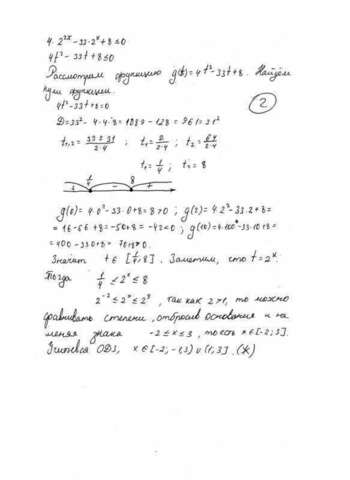 4·2²ˣ-33·2ˣ+8≤0
4t²-33t+8≤0
Рассмотрим функцию g(t)=4t²-33t+8. Найдём
нули функции.
4t²-33t+8=0
②
D=33²-4·4·8=1089-128=961=31²
t₁,₂=(33±31)/(2·4); t₁=2/(2·4); t₂=64/(2·4)
t₁=1/4; t₂=8
+ 1/4 - 8 +
g(0)=4·0²-33·0+8=8>0; g(2)=4·2²-33·2+8=
=16-66+8=-50+8=-42<0; g(10)=4·100-33·10+8=
=400-330+8=78>0.
Значит t∈[1/4;8]. Заметим, что t=2ˣ.
Тогда 1/4≤2ˣ≤8
2⁻²≤2ˣ≤2³, так как 2>1, то можно
сравнивать степени, отбросив основания и не
меняя знака -2≤x≤3, то есть x∈[-2;3].
Учитывая ОДЗ, x∈[-2;-1,3)∪(1;3]. (Ж)